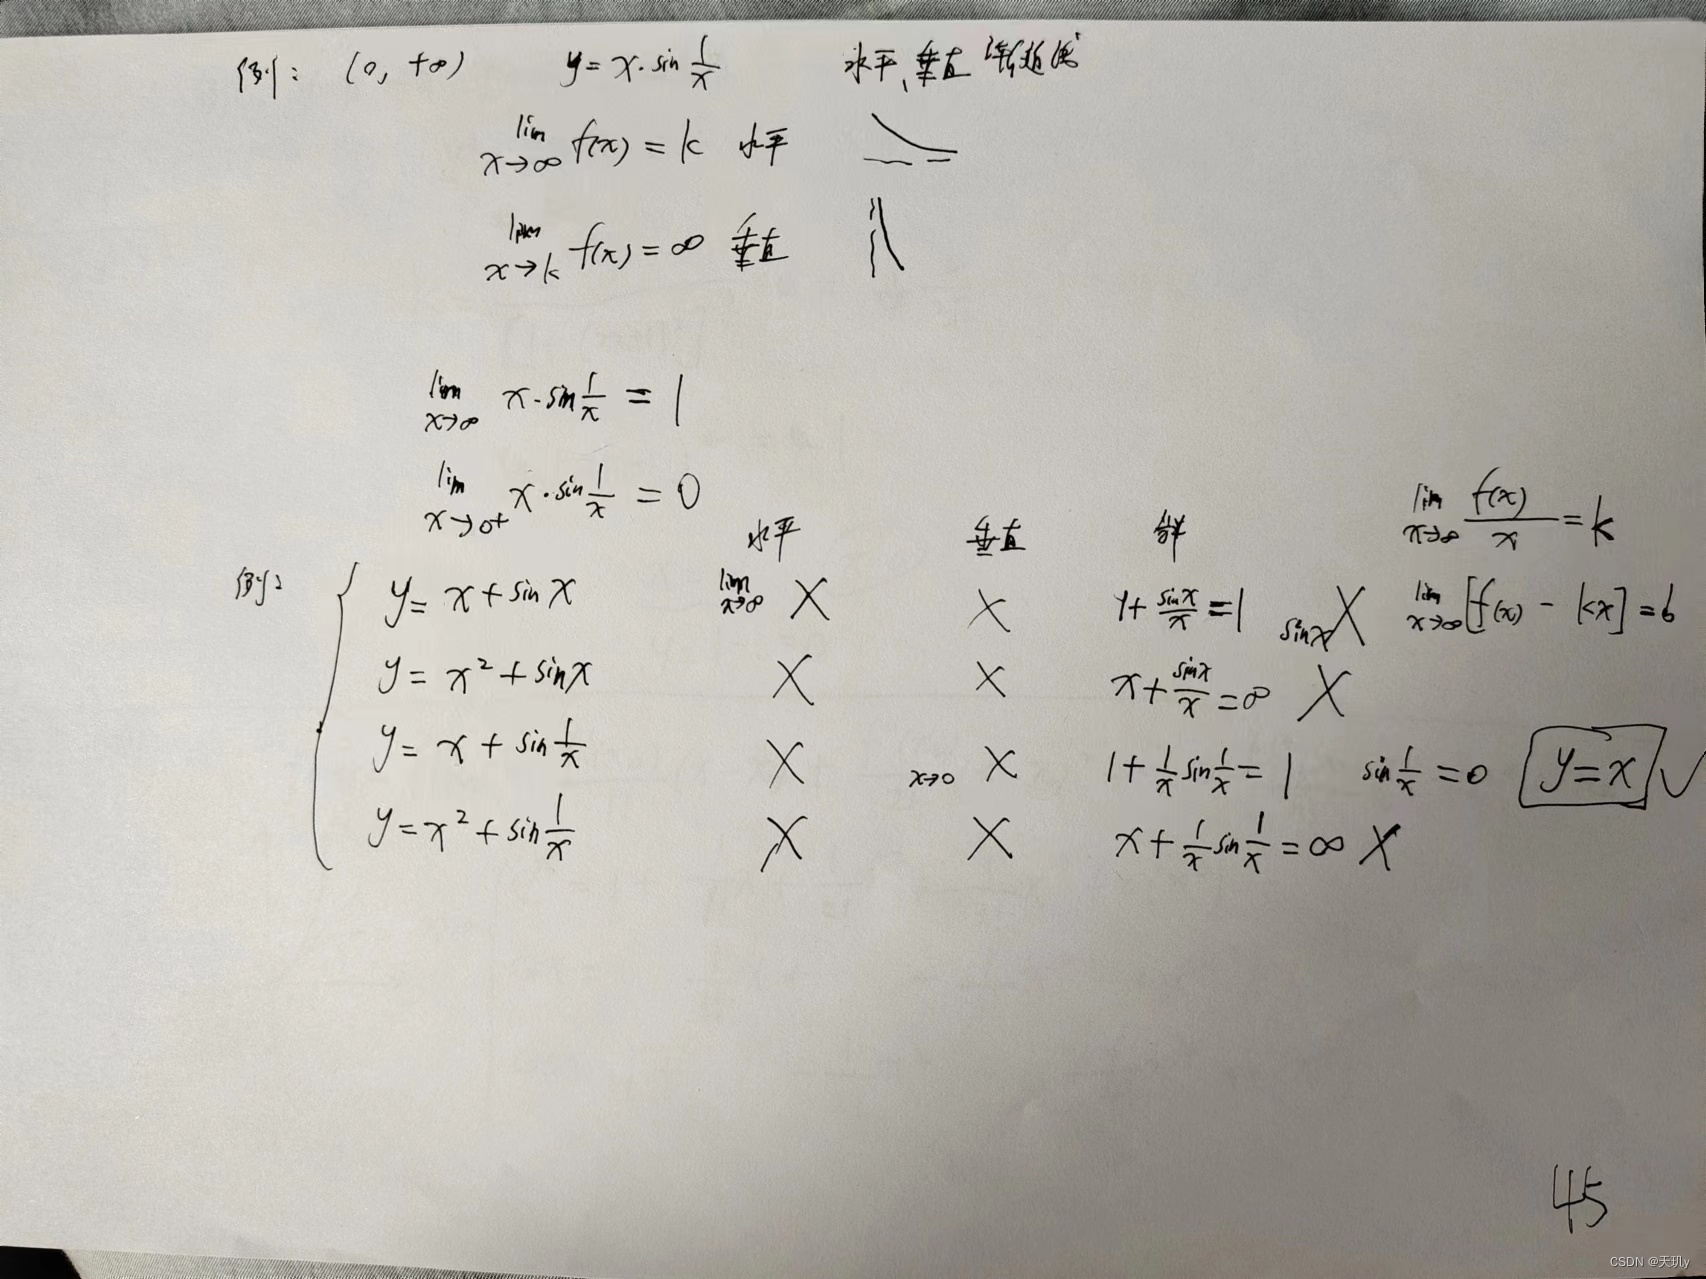 例: (0, +∞) y = x·sin 1/x 水平、垂直 渐近线
lim x→∞ f(x) = k 水平
lim x→k f(x) = ∞ 垂直
lim x→∞ x·sin 1/x = 1
lim x→0+ x·sin 1/x = 0
水平 垂直 斜 lim x→∞ f(x)/x = k
例: y = x + sin x lim x→∞ X X 1 + sin x/x = 1 sin x X lim x→∞ [f(x) - kx] = b
y = x² + sin x X X x + sin x/x = ∞ X
y = x + sin 1/x X x→0 X 1 + 1/x sin 1/x = 1 sin 1/x = 0 y = x ✓
y = x² + sin 1/x X X x + 1/x sin 1/x = ∞ X
45
CSDN @天玑y